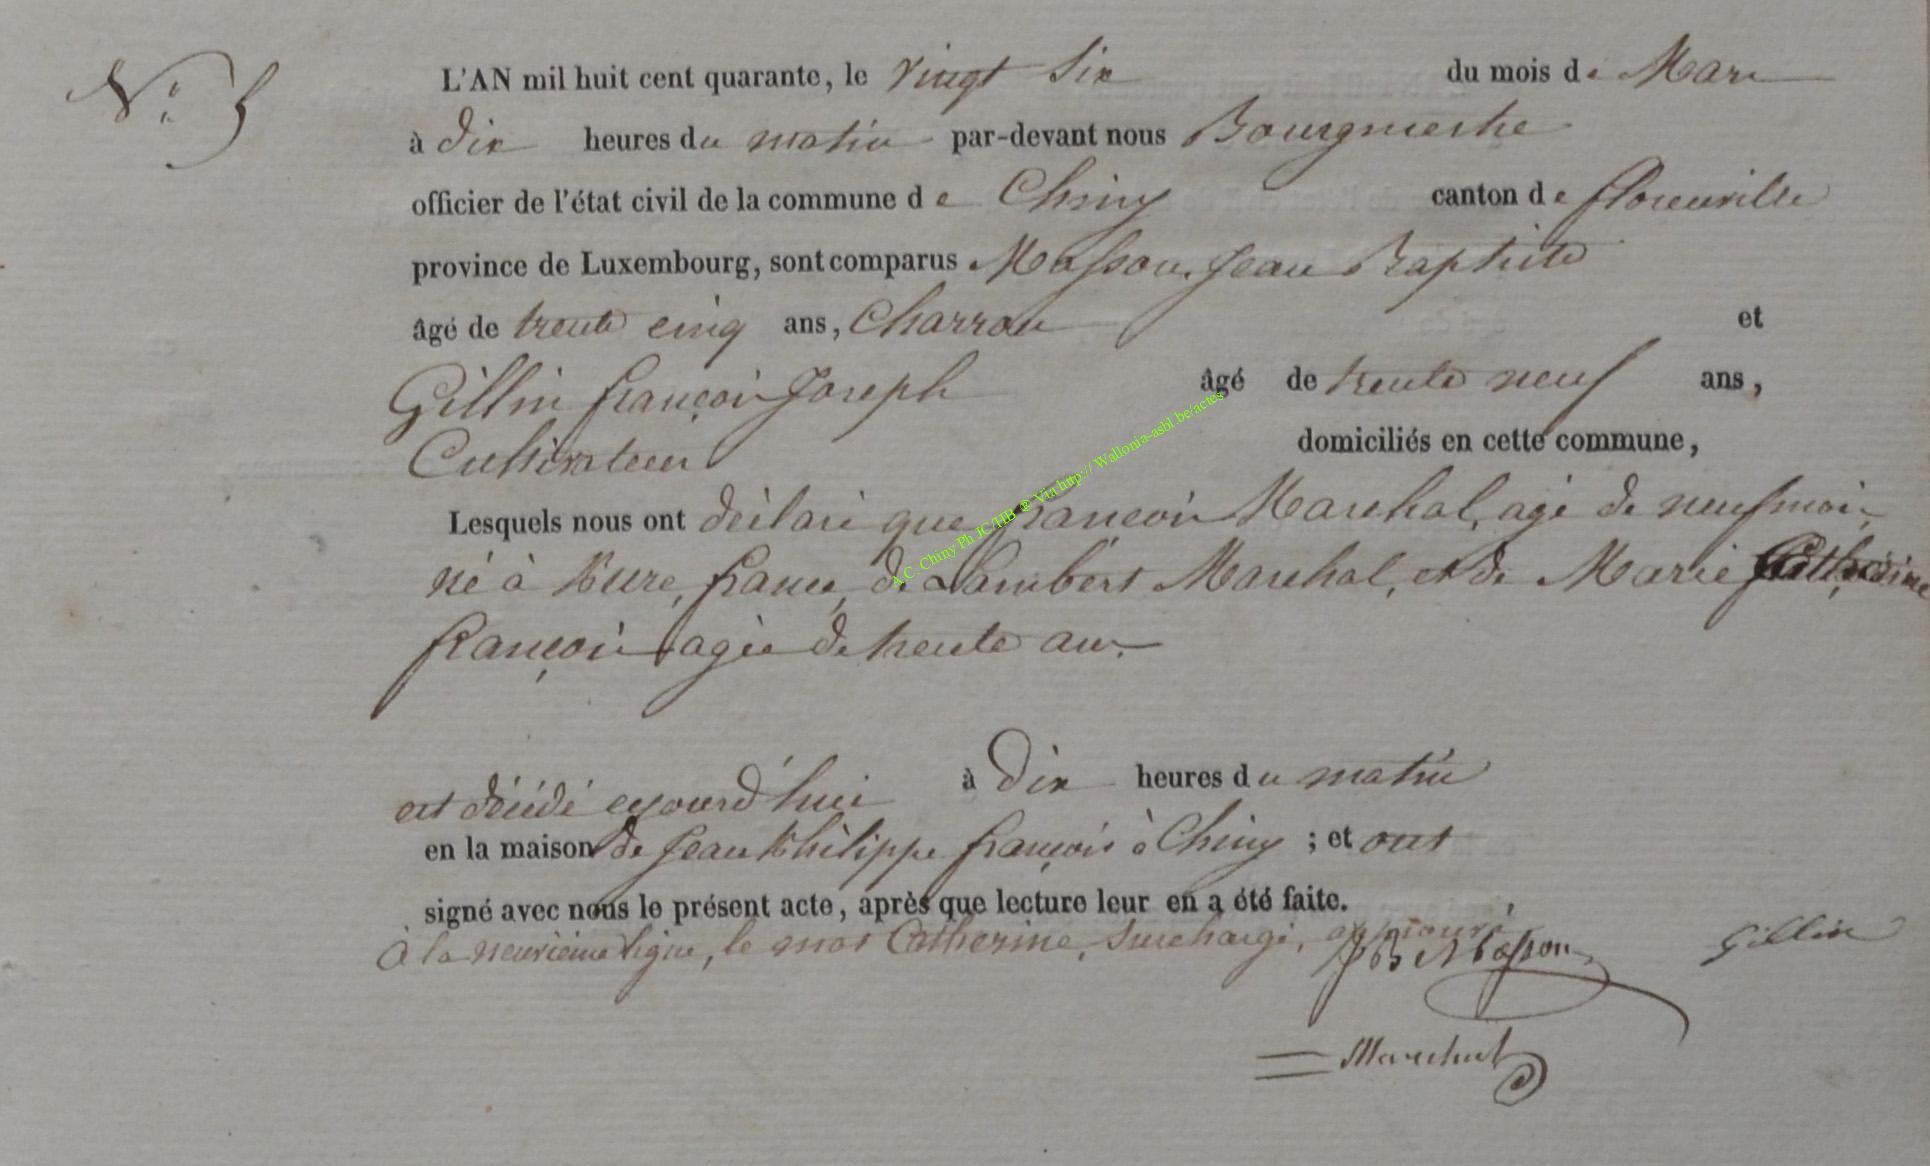 N° 5
L'AN mil huit cent quarante, le vingt six du mois de Mars
à dix heures du matin par-devant nous Bourgmestre
officier de l'état civil de la commune de Chiny canton de florenville
province de Luxembourg, sont comparus Masson, Jean Baptiste
âgé de trente cinq ans, Charron et
Gillin françois Joseph âgé de trente neuf ans,
Cultivateur domiciliés en cette commune,
Lesquels nous ont déclaré que françois Marechal, agé de neuf mois,
né à france, de Lambert Marechal, et de Marie Catherine
françois agée de trente ans
est décédé aujourd'hui à dix heures du matin
en la maison de Jean Philippe françois à Chiny ; et ont
signé avec nous le présent acte, après que lecture leur en a été faite.
à la neuvième ligne, le mot Catherine, surchargé, approuvé
JB Masson Gillin
Marechal
A.C. Chiny Ph JC/HB ® Via http:// Wallonia-asbl.be/actes